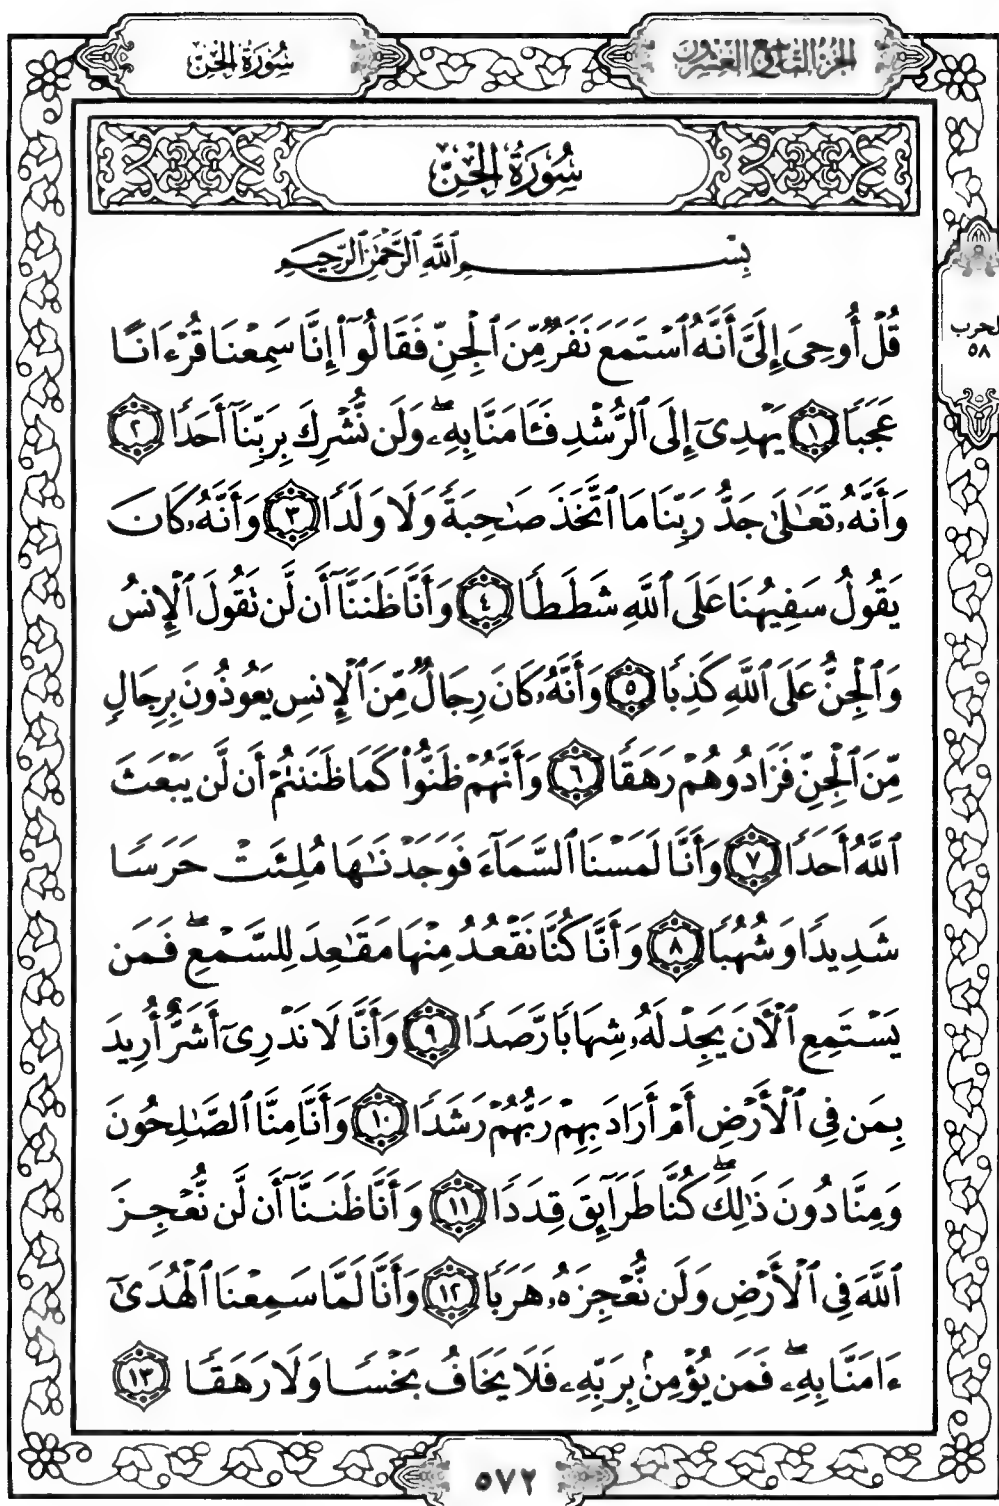 الجزء التاسع والعشرون
سُورَةُ الجِنّ
سُورَةُ الجِنّ
بِسْمِ ٱللَّهِ ٱلرَّحْمَٰنِ ٱلرَّحِيمِ
قُلْ أُوحِىَ إِلَىَّ أَنَّهُ ٱسْتَمَعَ نَفَرٌ مِّنَ ٱلْجِنِّ فَقَالُوٓا۟ إِنَّا سَمِعْنَا قُرْءَانًا
عَجَبًا ١ يَهْدِىٓ إِلَى ٱلرُّشْدِ فَـَٔامَنَّا بِهِۦ ۖ وَلَن نُّشْرِكَ بِرَبِّنَآ أَحَدًا ٢
وَأَنَّهُۥ تَعَٰلَىٰ جَدُّ رَبِّنَا مَا ٱتَّخَذَ صَٰحِبَةً وَلَا وَلَدًا ٣ وَأَنَّهُۥ كَانَ
يَقُولُ سَفِيهُنَا عَلَى ٱللَّهِ شَطَطًا ٤ وَأَنَّا ظَنَنَّآ أَن لَّن تَقُولَ ٱلْإِنسُ
وَٱلْجِنُّ عَلَى ٱللَّهِ كَذِبًا ٥ وَأَنَّهُۥ كَانَ رِجَالٌ مِّنَ ٱلْإِنسِ يَعُوذُونَ بِرِجَالٍ
مِّنَ ٱلْجِنِّ فَزَادُوهُمْ رَهَقًا ٦ وَأَنَّهُمْ ظَنُّوا۟ كَمَا ظَنَنتُمْ أَن لَّن يَبْعَثَ
ٱللَّهُ أَحَدًا ٧ وَأَنَّا لَمَسْنَا ٱلسَّمَآءَ فَوَجَدْنَٰهَا مُلِئَتْ حَرَسًا
شَدِيدًا وَشُهُبًا ٨ وَأَنَّا كُنَّا نَقْعُدُ مِنْهَا مَقَٰعِدَ لِلسَّمْعِ ۖ فَمَن
يَسْتَمِعِ ٱلْـَٔانَ يَجِدْ لَهُۥ شِهَابًا رَّصَدًا ٩ وَأَنَّا لَا نَدْرِىٓ أَشَرٌّ أُرِيدَ
بِمَن فِى ٱلْأَرْضِ أَمْ أَرَادَ بِهِمْ رَبُّهُمْ رَشَدًا ١٠ وَأَنَّا مِنَّا ٱلصَّٰلِحُونَ
وَمِنَّا دُونَ ذَٰلِكَ ۖ كُنَّا طَرَآئِقَ قِدَدًا ١١ وَأَنَّا ظَنَنَّآ أَن لَّن نُّعْجِزَ
ٱللَّهَ فِى ٱلْأَرْضِ وَلَن نُّعْجِزَهُۥ هَرَبًا ١٢ وَأَنَّا لَمَّا سَمِعْنَا ٱلْهُدَىٰٓ
ءَامَنَّا بِهِۦ ۖ فَمَن يُؤْمِنۢ بِرَبِّهِۦ فَلَا يَخَافُ بَخْسًا وَلَا رَهَقًا ١٣
الحزب
٥٨
٥٧٢